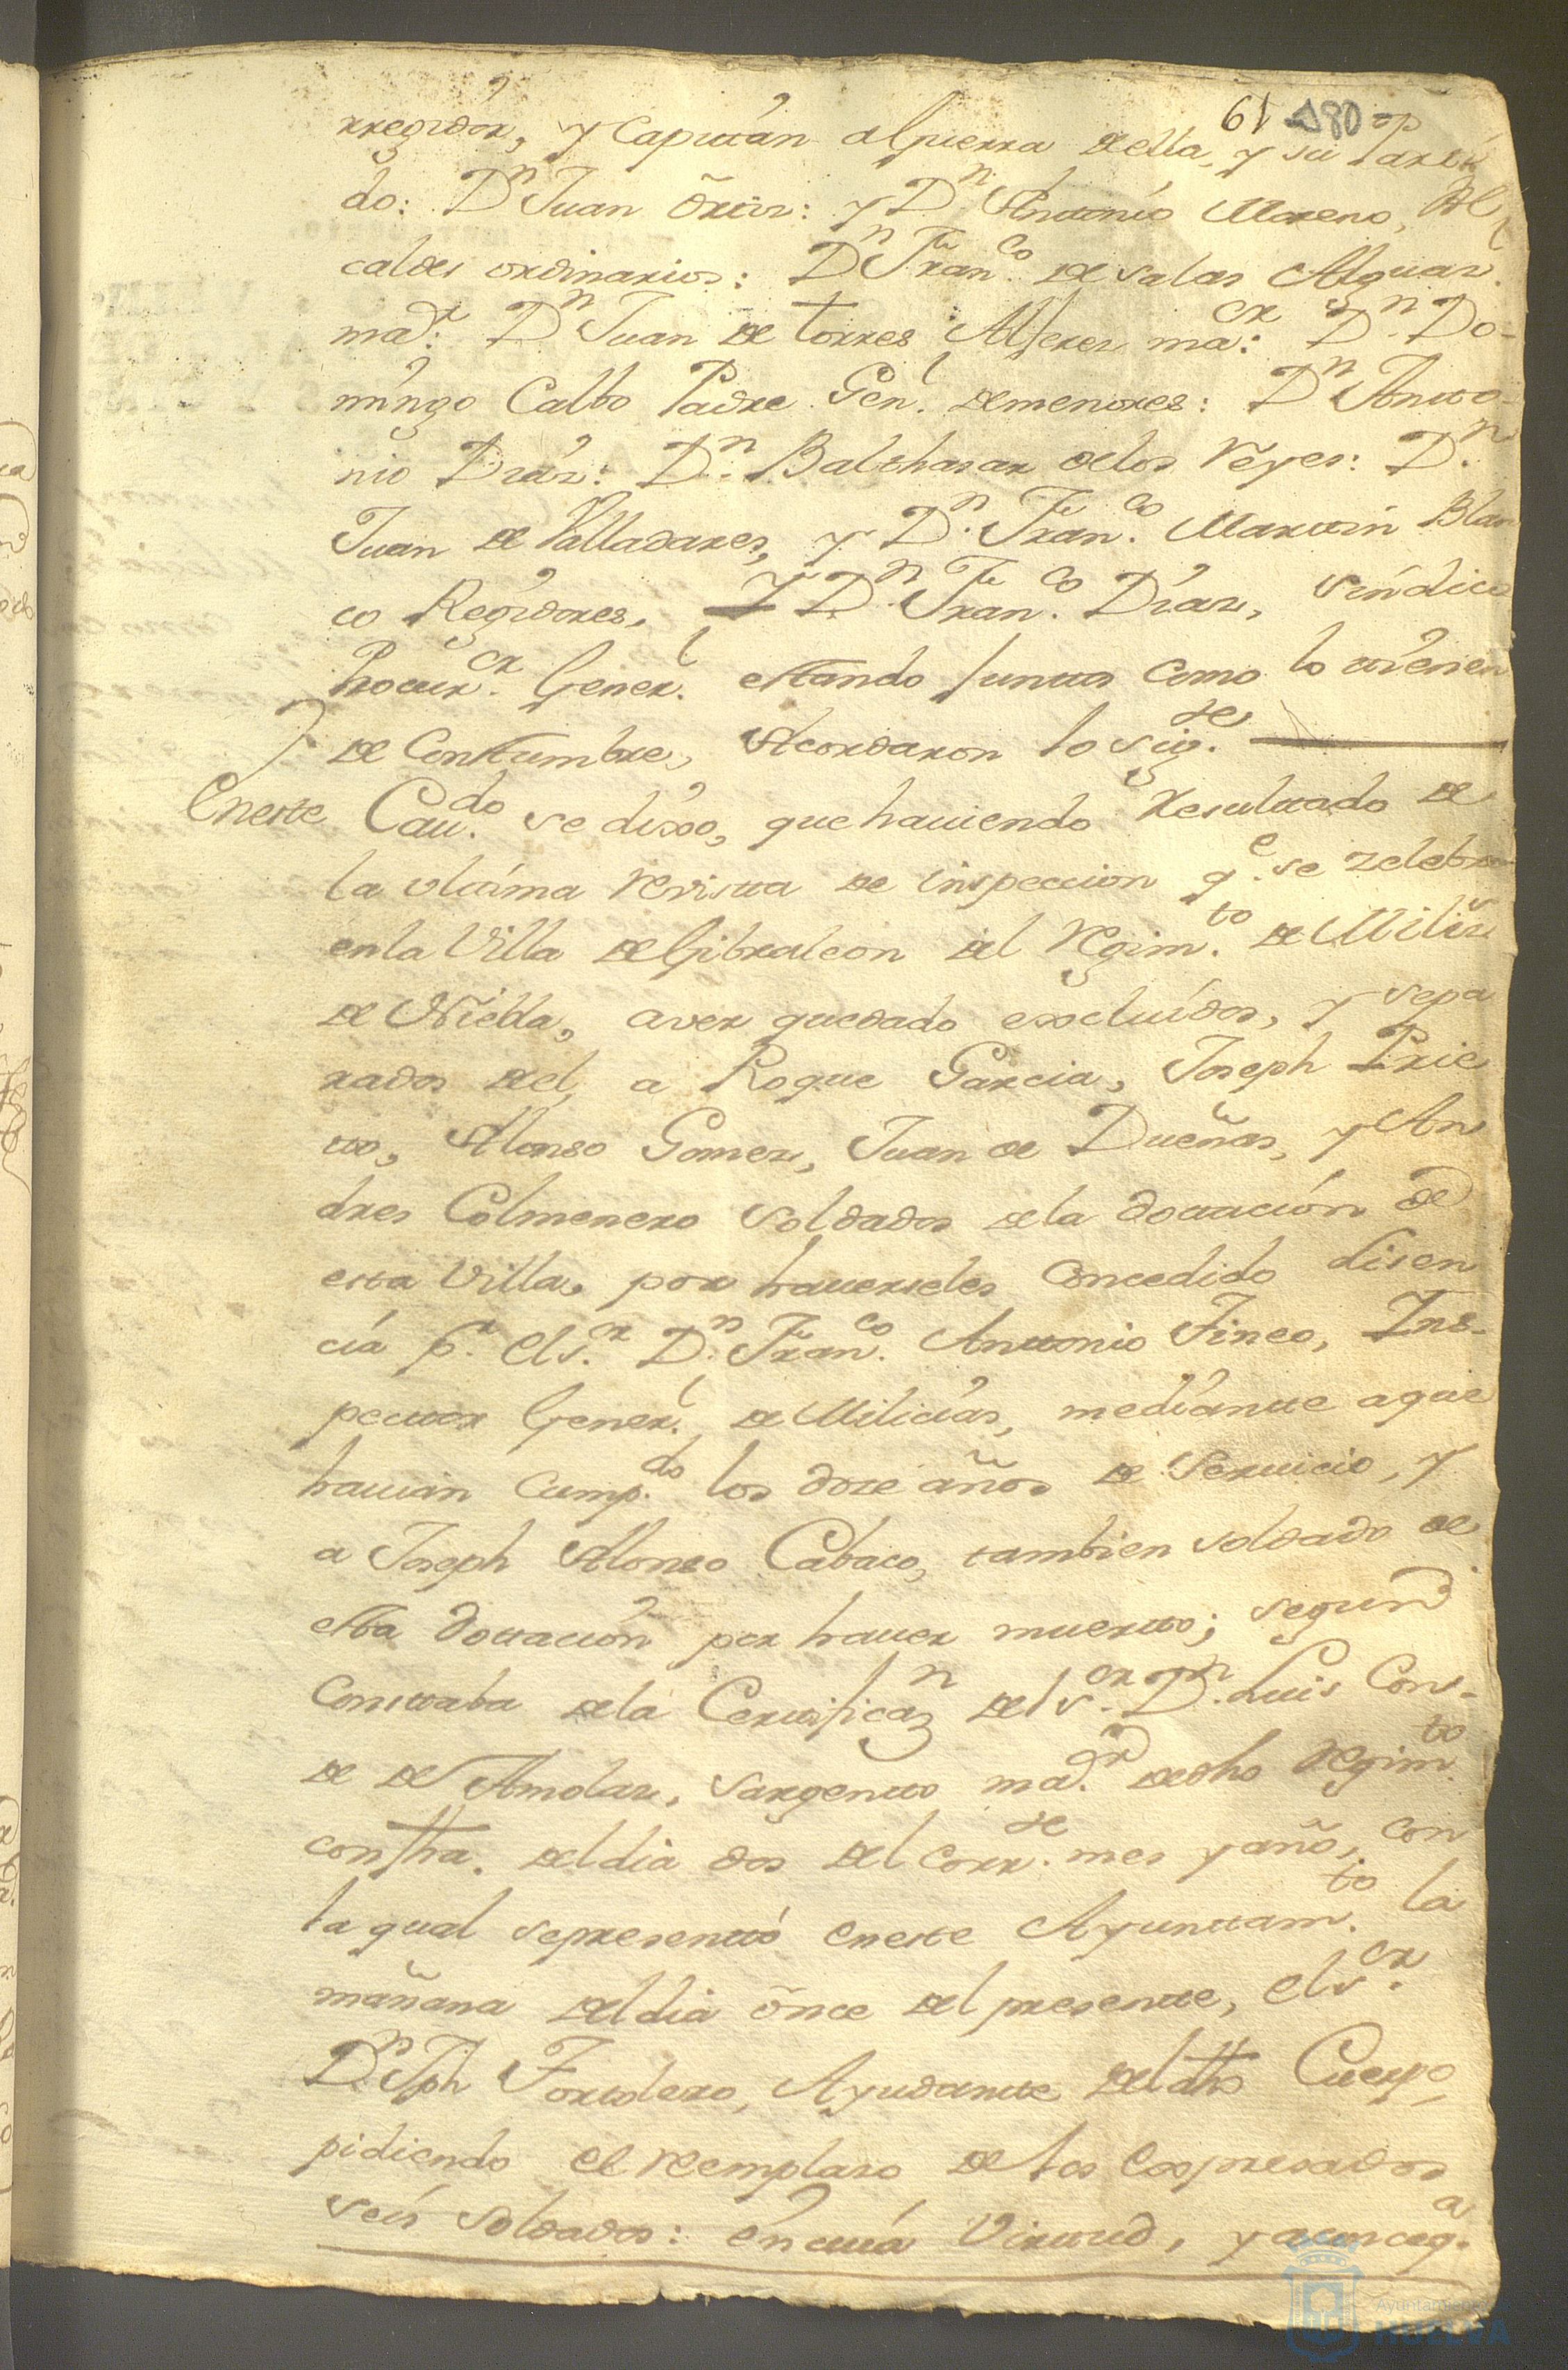 61 180
rregidor, y Capitán a Guerra della, y su Parti
do: Dn Juan Ortiz: y Dn Antonio Moreno, Al
caldes ordinarios: Dn Franco. de Salas Alguazl.
mar: Dn Juan de torres Alferez maor: Dn. Do-
mingo Calbo Padre Genl. de menores: Dn Anto-
nio Diáz: Dn. Balthasar de los Reyes: Dn.
Juan de Valladares, y Dn. Franco. Martin Blan
co Regidores. Y Dn. Franco. Diáz, Sindico
Procuror. Generl. estando juntos como lo tienen
de Constumbre, Acordaron lo sigte.
En este Cavdo. se dixo, que haviendo resultado de
la ultima revista de inspeccion qe. se zelebro
en la Villa de Gibraleon del Regimto. de Miliz
de Niebla, aver quedado excluidos, y sepa
rados del, a Roque Garcia, Joseph Prie
to, Alonso Gomez, Juan de Dueñas, y An
dres Colmenero soldados de la dotación de
esta Villa, por haverseles Concedido lisen
cia pr. el Sor. Dn. Franco. Antonio Tineo, Ins-
pector Generl. de Milicias, mediante a que
havian Cumpdo. los doze años de Servicio, y
a Joseph Alonso Cabaco, tambien soldado de
esta dotación por haver muerto; segun
Constaba de la Certificazn del Sor. Dn. Luis Con-
de de Amolaz, Sargento mar. de dho Regimto.
con fha. del dia dos del Corrte. mes y año, con
la qual se presentó en este Ayuntamto. la
mañana del dia once del presente, el Sor.
Dn Jph Fortolero, Ayudante del dho Cuerpo,
pidiendo el reemplazo de los Expresados
seis Soldados: En cuia Virtud, y a conceqa.
Ayuntamiento de
HUELVA